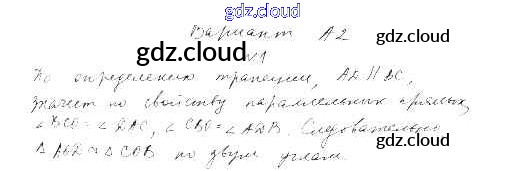 gdz.cloud
Вариант А2
gdz.cloud
gdz.cloud
№1
По определению трапеции, AD || BC,
значит по свойству параллельных прямых,
∠BCO = ∠DAC, ∠CBO = ∠ADB. Следовательно
gdz.cloud
gdz.cloud
Δ AOD ∾ Δ COB по двум углам.